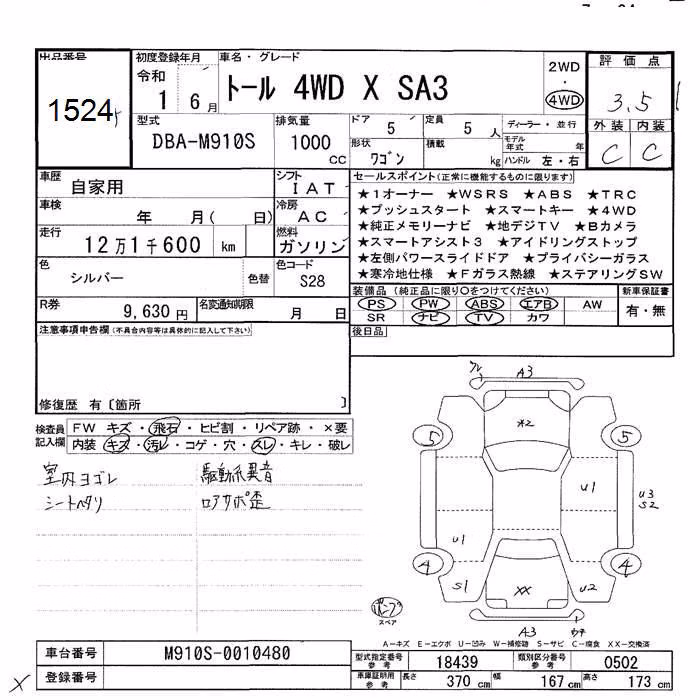 出品番号
1524
初度登録年月
令和
1 6月
車名・グレード
トール 4WD X SA3
2WD
・
4WD
評価点
3.5
外装 内装
C C
型式
DBA-M910S
排気量
1000
CC
ドア
5
定員
5 人
ディーラー・並行
形状
ワゴン
積載
kg
モデル年式 年
ハンドル 左・右
車歴
自家用
シフト
IAT
車検
年 月( 日)
冷房
AC
走行
12万1千600 km
燃料
ガソリン
色
シルバー
色替
色コード
S28
R券
9,630円
名変通知期限
月 日
セールスポイント(正常に機能するものに限ります)
★1オーナー ★WSRS ★ABS ★TRC
★プッシュスタート ★スマートキー ★4WD
★純正メモリーナビ ★地デジTV ★Bカメラ
★スマートアシスト3 ★アイドリングストップ
★左側パワースライドドア ★プライバシーガラス
★寒冷地仕様 ★Fガラス熱線 ★ステアリングSW
装備品(純正品に限り○をつけてください)
PS PW ABS エアB AW
SR ナビ TV カワ
新車保証書
有・無
後日品
注意事項申告欄(不具合内容等は具体的に記入して下さい)
修復歴 有〔箇所 〕
検査員
記入欄
FW キズ・飛石・ヒビ割・リペア跡・×要
内装 キズ・汚レ・コゲ・穴・スレ・キレ・破レ
室内ヨゴレ 駆動系異音
シートヘタリ ロアサポ歪
A3
5 *2 5
U1
U3
S2
U1
4 4
S1 XX U2
A3
スペア
A-キズ E-エクボ U-凹み W-補修跡 S-サビ C-腐食 XX-交換済
車台番号 M910S-0010480
登録番号
X
型式指定番号
参考
18439
類別区分番号
参考
0502
車庫証明用
参考
長さ 370 cm 幅 167 cm 高さ 173 cm